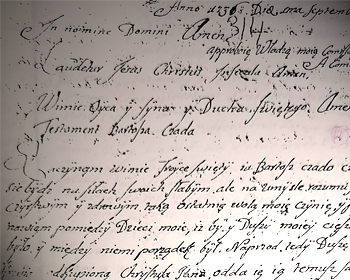 Anno 1736 Die 1ma Septem
In nomine Domini Amen
approbuię Władzą moią
Laudetur Jesus Christus In Secula Amen.
W imie Oyca y Syna y Ducha Swiętego Ame
Testament Bartosza Czada
Zaczynąm w imie Troyce Swięty ia Bartosz Czado
się będąc na siłach swoich słabym ale na umysle rozumu
czystwym y zdrowym, taką ostatnią wolą moię czynię y
nowiąm pomiędzy Dzieci moie, iż by y Duszy moiey
było y między niemi porządek był. Naprzod tedy Duszę
Christusa Jezusa odda ię ią temusz